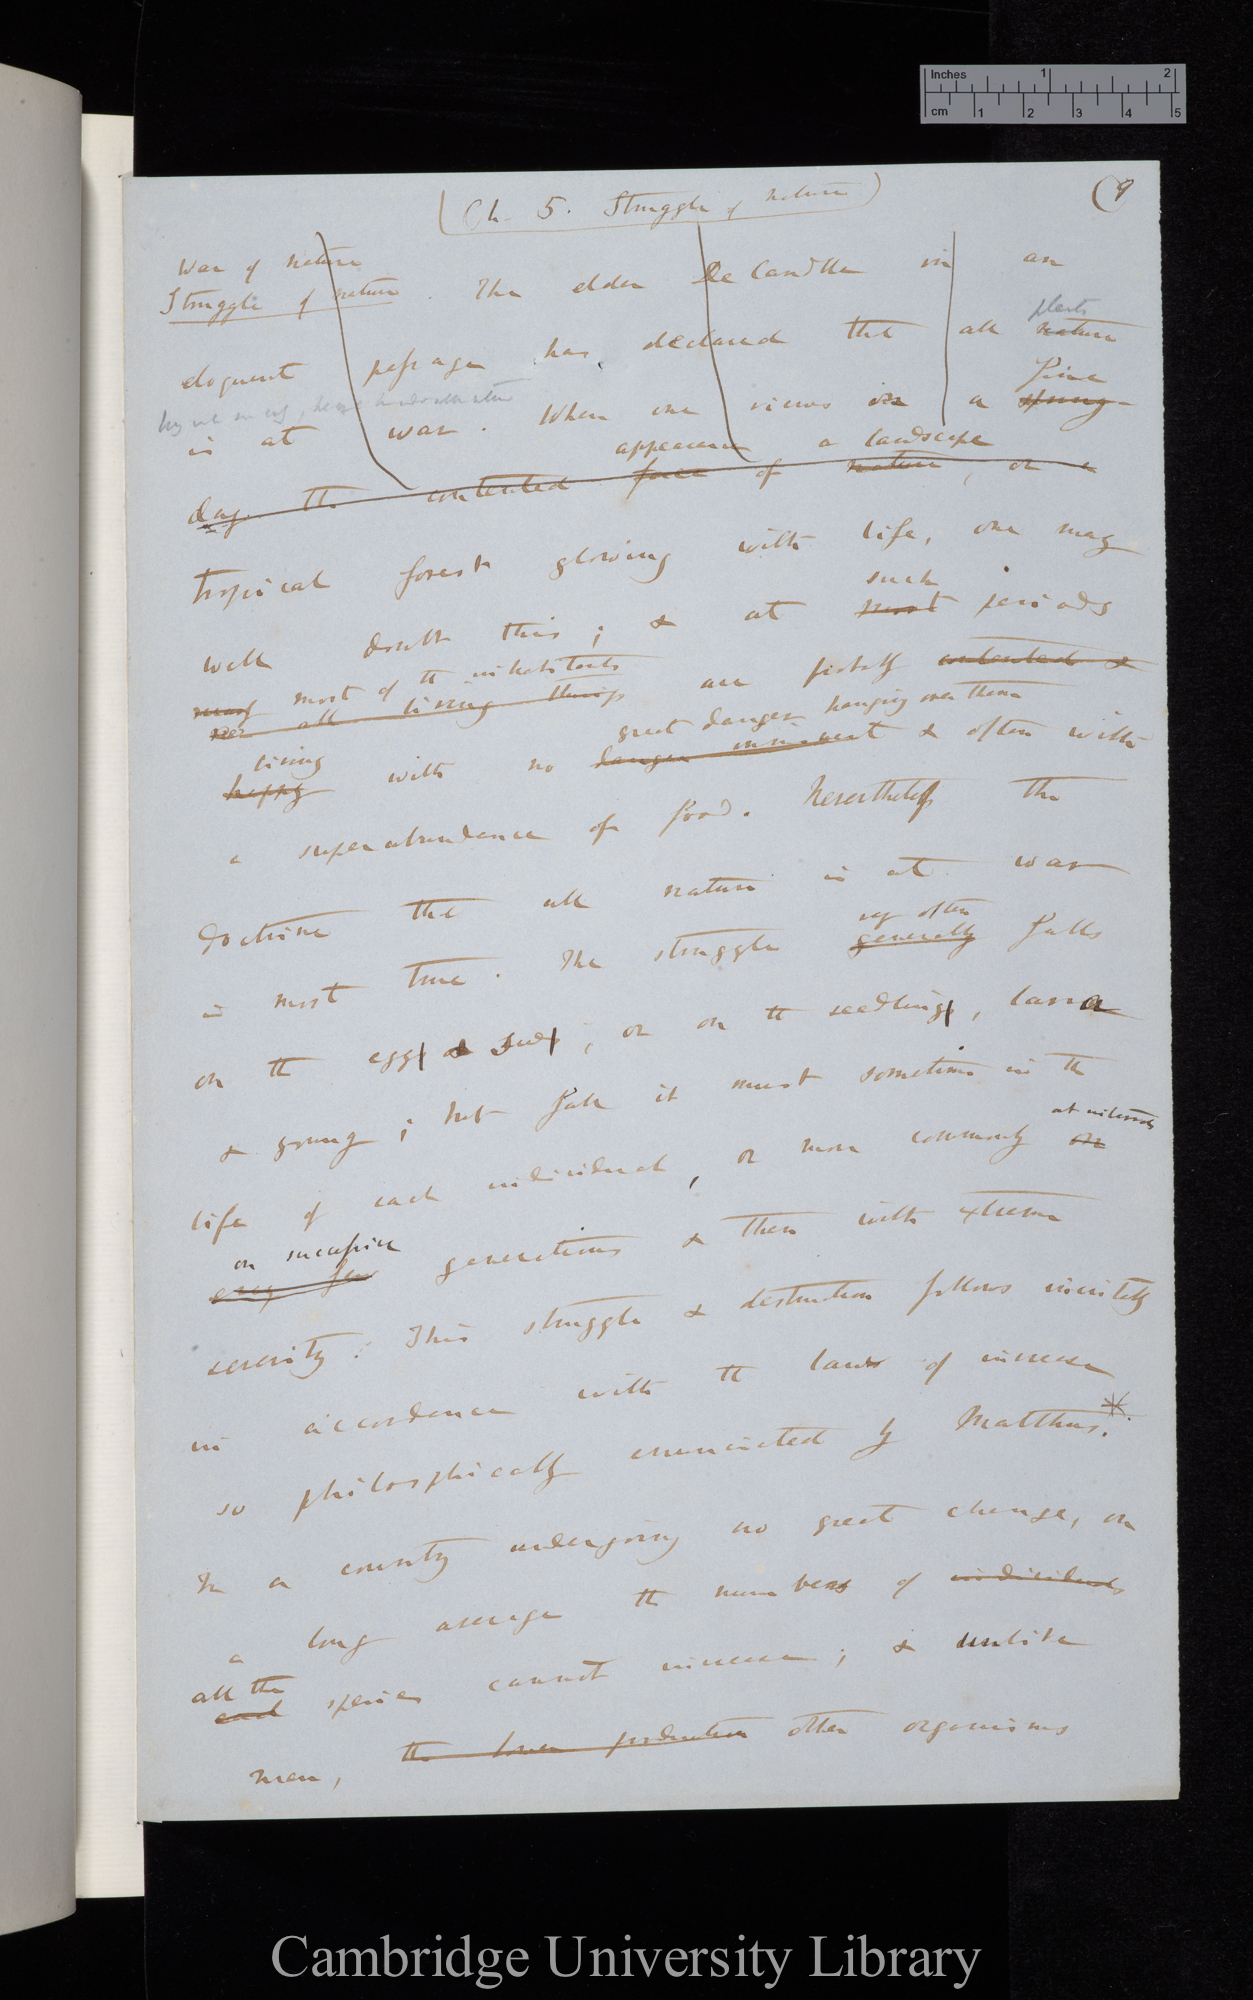 Inches 1 2
cm 1 2 3 4 5
(Ch. 5. Struggle of nature)
(9
War of nature
Struggle of nature. The elder De Candolle in an
plants
eloquent passage has declared that all nature
fine
is at war. When one views in a spring
appearance a landscape
day the contented face of nature, or a
tropical forest glowing with life, one may
such
well doubt this; & at most periods
many most of the inhabitants
all living things are probably contented &
great danger hanging over them
living
happy with no danger imminent & often with
a superabundance of food. Nevertheless the
doctrine that all nature is at war
very often
is most true. The struggle generally falls
on the egg & seed, or on the seedling, larva
& young; but fall it must sometime in the
at intervals
life of each individual, or more commonly on
on successive
every few generations & then with extreme
severity. This struggle & destruction follows inevitably
in accordance with the laws of increase
so philosophically enunciated by Malthus.*
In a country undergoing no great change, on
a long average the numbers of individuals
all the
each species cannot increase; & unlike
man, the lower productions other organisms
Cambridge University Library